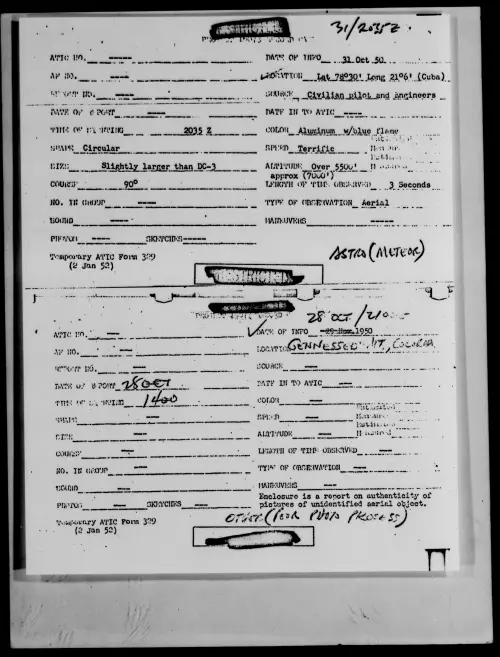 31/2035Z
ATIC NO. ----- DATE OF INFO 31 Oct 50
AF NO. ---- LOCATION Lat 78°30' Long 21°06' (Cuba)
REPORT NO. ---- SOURCE Civilian pilot and Engineers
DATE OF REPORT ---- DATE IN TO ATIC ----
TIME OF SIGHTING 2035 Z COLOR Aluminum w/blue flame
SHAPE Circular SPEED Terrific
SIZE Slightly larger than DC-3 ALTITUDE Over 5500'
approx (7000')
COURSE 90° LENGTH OF TIME OBSERVED 3 Seconds
NO. IN GROUP ---- TYPE OF OBSERVATION Aerial
SOUND ---- MANEUVERS -----
PHOTOS ---- SKETCHES-----
Temporary ATIC Form 329
(2 Jan 52)
ASTRO (METEOR)
RESTRICTED
28 OCT /
ATIC NO. --- DATE OF INFO 1950
AF NO. --- LOCATION
REPORT NO. --- SOURCE ---
DATE OF REPORT 28 OCT DATE IN TO ATIC ---
TIME OF SIGHTING 1400 COLOR ---
SHAPE --- SPEED ---
SIZE --- ALTITUDE ---
COURSE --- LENGTH OF TIME OBSERVED ---
NO. IN GROUP --- TYPE OF OBSERVATION ---
SOUND --- MANEUVERS ---
PHOTOS --- SKETCHES ---
Enclosure is a report on authenticity of
pictures of unidentified aerial object.
Temporary ATIC Form 329
(2 Jan 52)
OTHER (POOR PHOTO PROCESS)